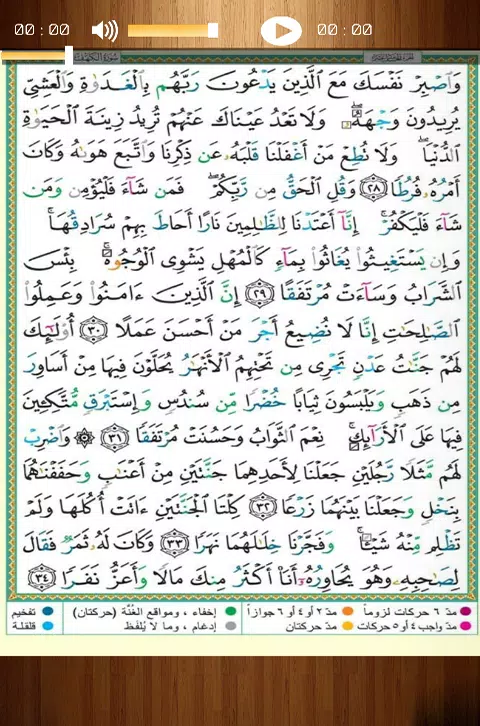 00:00 00:00
سورة الكهف
وَٱصۡبِرۡ نَفۡسَكَ مَعَ ٱلَّذِينَ يَدۡعُونَ رَبَّهُم بِٱلۡغَدَوٰةِ وَٱلۡعَشِيِّ
يُرِيدُونَ وَجۡهَهُۥۖ وَلَا تَعۡدُ عَيۡنَاكَ عَنۡهُمۡ تُرِيدُ زِينَةَ ٱلۡحَيَوٰةِ
ٱلدُّنۡيَاۖ وَلَا تُطِعۡ مَنۡ أَغۡفَلۡنَا قَلۡبَهُۥ عَن ذِكۡرِنَا وَٱتَّبَعَ هَوَىٰهُ وَكَانَ
أَمۡرُهُۥ فُرُطٗا ٢٨ وَقُلِ ٱلۡحَقُّ مِن رَّبِّكُمۡۖ فَمَن شَآءَ فَلۡيُؤۡمِن وَمَن
شَآءَ فَلۡيَكۡفُرۡۚ إِنَّآ أَعۡتَدۡنَا لِلظَّٰلِمِينَ نَارًا أَحَاطَ بِهِمۡ سُرَادِقُهَاۚ
وَإِن يَسۡتَغِيثُواْ يُغَاثُواْ بِمَآءٖ كَٱلۡمُهۡلِ يَشۡوِي ٱلۡوُجُوهَۚ بِئۡسَ
ٱلشَّرَابُ وَسَآءَتۡ مُرۡتَفَقًا ٢٩ إِنَّ ٱلَّذِينَ ءَامَنُواْ وَعَمِلُواْ
ٱلصَّٰلِحَٰتِ إِنَّا لَا نُضِيعُ أَجۡرَ مَنۡ أَحۡسَنَ عَمَلًا ٣٠ أُوْلَٰٓئِكَ
لَهُمۡ جَنَّٰتُ عَدۡنٖ تَجۡرِي مِن تَحۡتِهِمُ ٱلۡأَنۡهَٰرُ يُحَلَّوۡنَ فِيهَا مِنۡ أَسَاوِرَ
مِن ذَهَبٖ وَيَلۡبَسُونَ ثِيَابًا خُضۡرٗا مِّن سُندُسٖ وَإِسۡتَبۡرَقٖ مُّتَّكِـِٔينَ
فِيهَا عَلَى ٱلۡأَرَآئِكِۚ نِعۡمَ ٱلثَّوَابُ وَحَسُنَتۡ مُرۡتَفَقٗا ٣١ ۞ وَٱضۡرِبۡ
لَهُم مَّثَلٗا رَّجُلَيۡنِ جَعَلۡنَا لِأَحَدِهِمَا جَنَّتَيۡنِ مِنۡ أَعۡنَٰبٖ وَحَفَفۡنَٰهُمَا
بِنَخۡلٖ وَجَعَلۡنَا بَيۡنَهُمَا زَرۡعٗا ٣٢ كِلۡتَا ٱلۡجَنَّتَيۡنِ ءَاتَتۡ أُكُلَهَا وَلَمۡ
تَظۡلِم مِّنۡهُ شَيۡـٔٗاۚ وَفَجَّرۡنَا خِلَٰلَهُمَا نَهَرٗا ٣٣ وَكَانَ لَهُۥ ثَمَرٞ فَقَالَ
لِصَٰحِبِهِۦ وَهُوَ يُحَاوِرُهُۥٓ أَنَا۠ أَكۡثَرُ مِنكَ مَالٗا وَأَعَزُّ نَفَرٗا ٣٤
مدّ ٦ حركات لزوماً مدّ ٢ أو ٤ أو ٦ جوازاً إخفاء ، ومواقع الغُنَّة (حركتان) تفخيم
مدّ واجب ٤ أو ٥ حركات مدّ حركتان إدغام ، وما لا يُلفَظ قلقلة